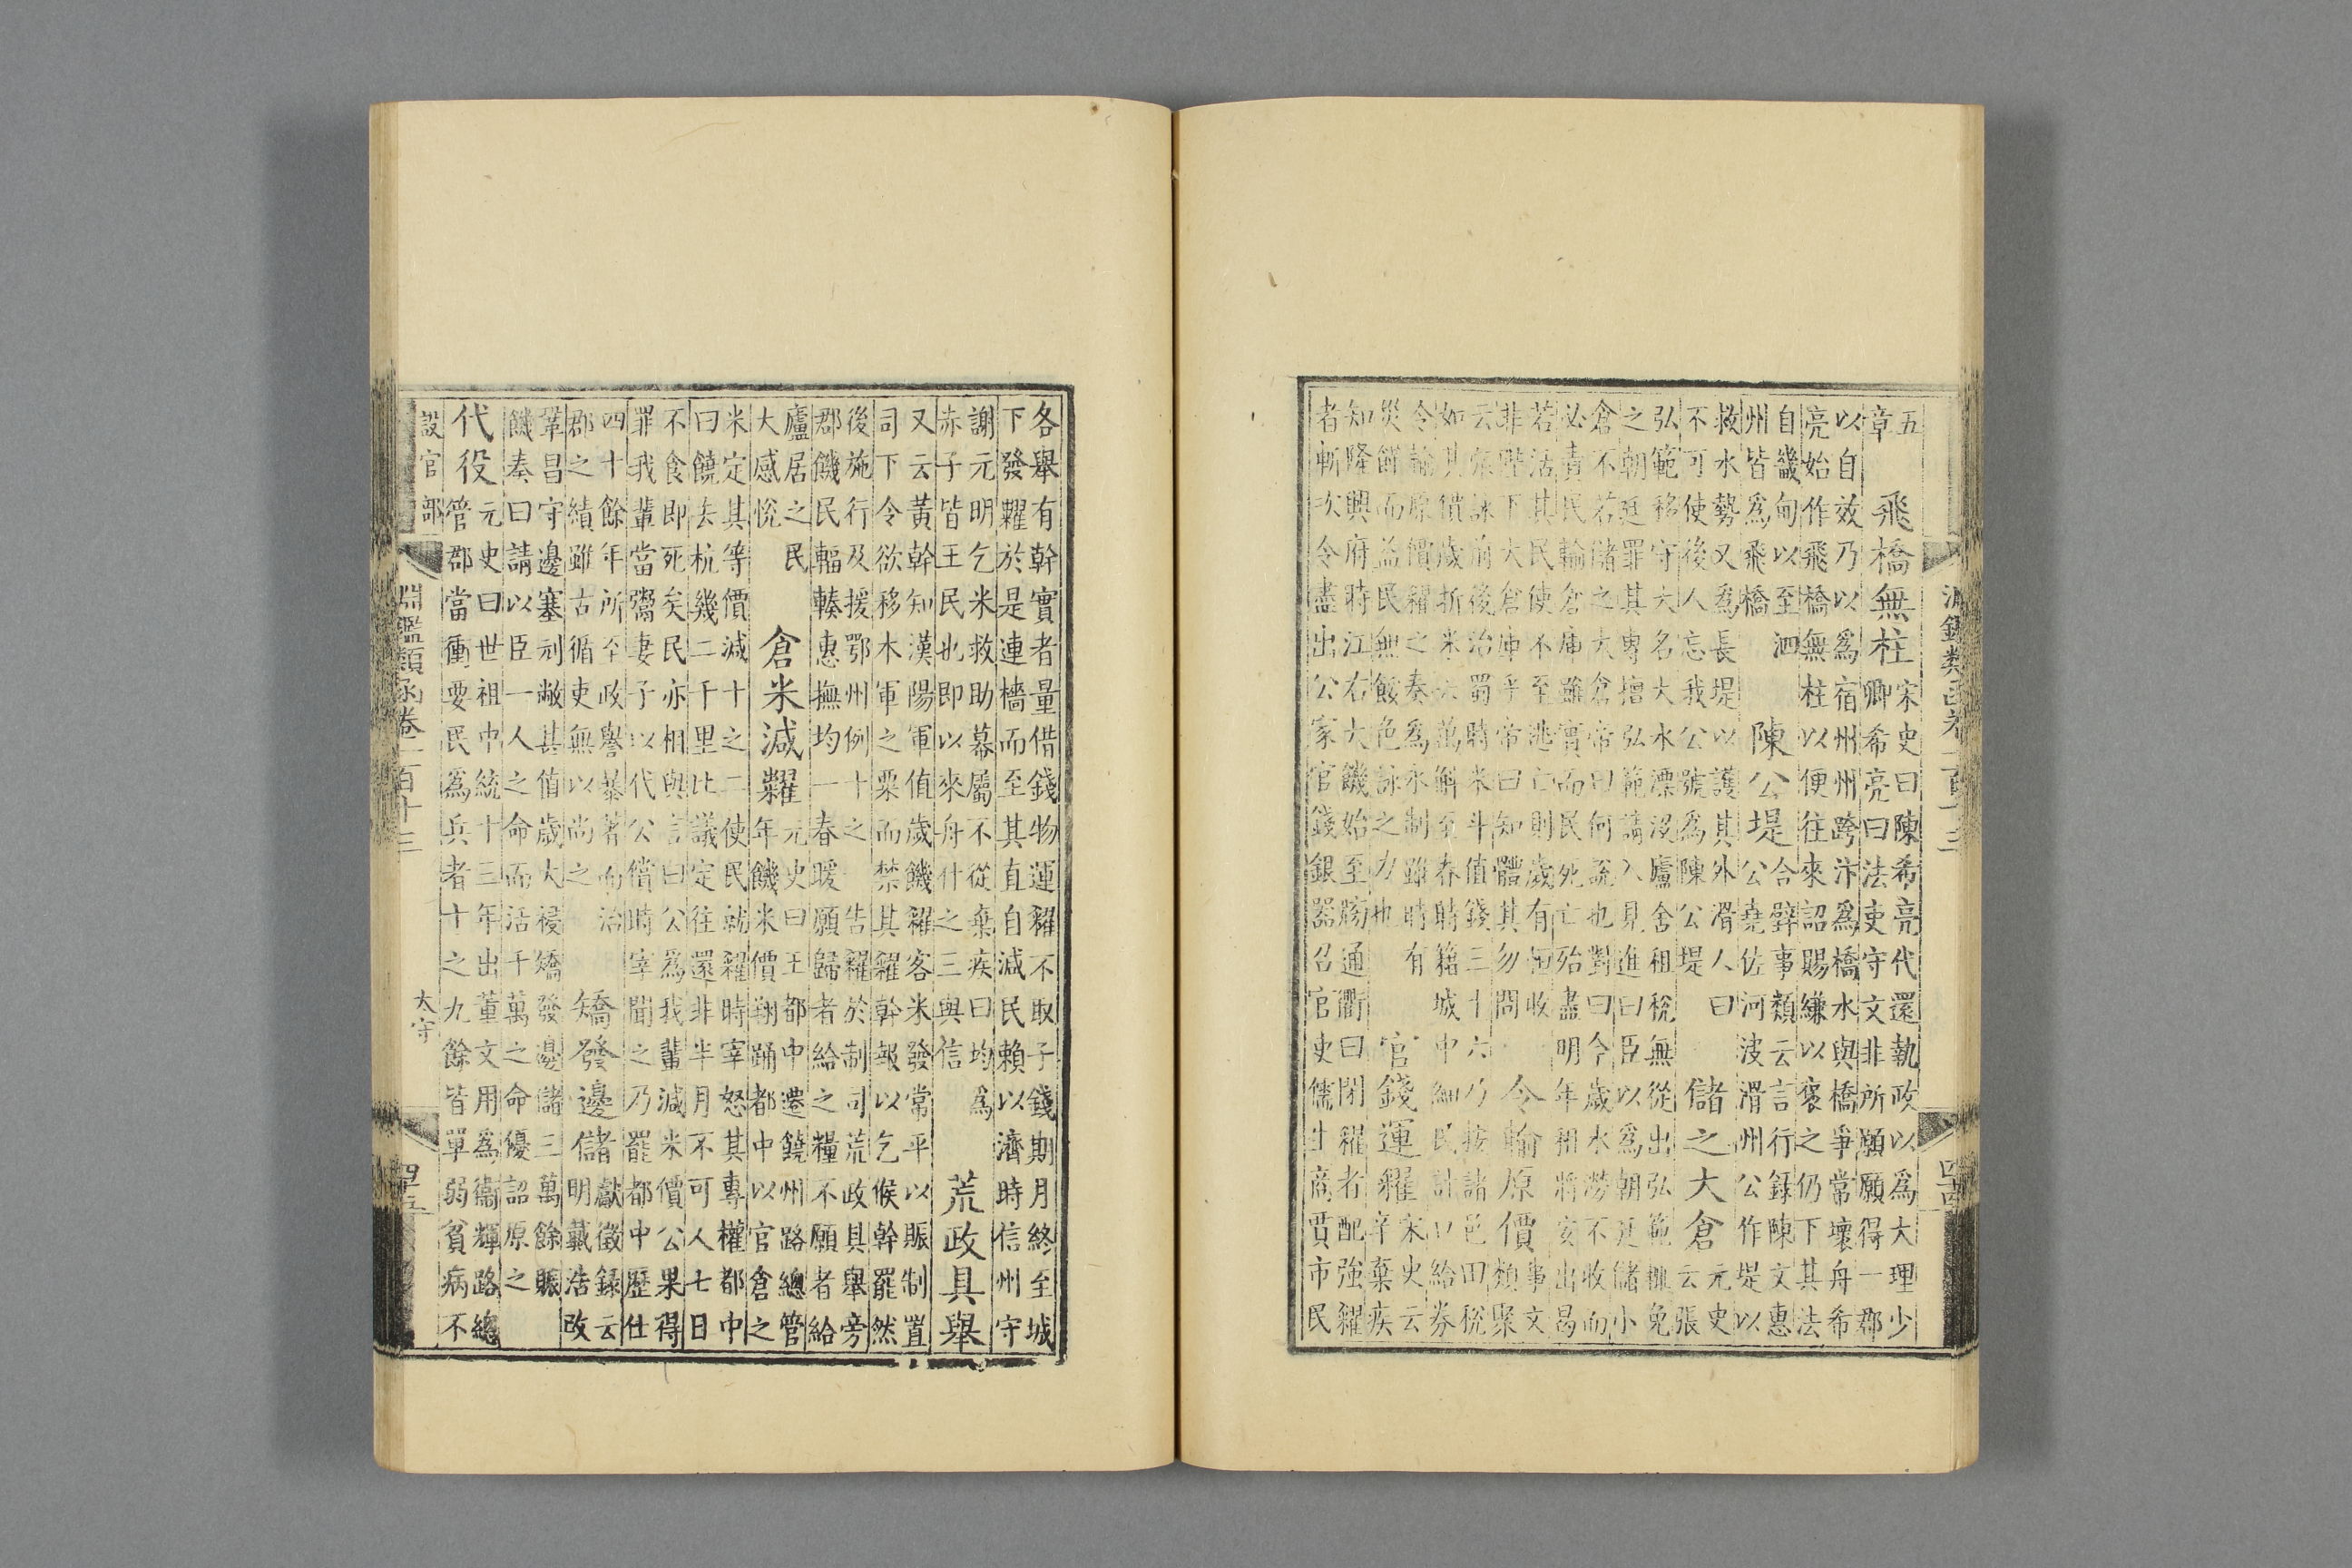 淵鑑類函卷一百十三
五
章
飛橋無柱
宋史曰陳希亮代還執政以為大理少
卿希亮曰法吏守文非所願願得一郡
以自效乃以為宿州州跨汴為橋水與橋爭常壞舟希
亮始作飛橋無柱以便往來詔賜縑以褒之仍下其法
自畿甸以至泗
州皆為飛橋
陳公堤
合璧事類云言行錄陳文惠
公堯佐河波滑州公作堤以
救水勢又為長堤以護其外滑人曰
不可使後人忘我公號為陳公堤
儲之大倉
元史
云張
弘範移守大名大水漂沒廬舍租稅無從出弘範輙免
之朝廷罪其專擅弘範請入見進曰臣以為朝廷儲小
倉不若儲之大倉帝曰何說也對曰今歲水潦不收而
必責民輸倉庫雖實而民死亡殆盡明年租將安出曷
若活其民使不至逃亡則歲有恒收
非陛下大倉庫乎帝曰知體其勿問
令輸原價
事文
類聚
云張詠前後治蜀時米斗值錢三十六乃按諸邑田稅
如其價歲折米六萬斛至春時籍城中細民計口給券
令輸原價糴之奏為永制雖時有
災饉而益民無餒色詠之力也
官錢運糴
宋史云
辛棄疾
知隆興府時江右大饑始至牓通衢曰閉糴者配強糴
者斬次令盡出公家官錢銀器召官吏儒生商賈市民
各舉有幹實者量借錢物運糴不取子錢期月終至城
下發糶於是連檣而至其直自減民賴以濟時信州守
謝元明乞米救助幕屬不從棄疾曰均為
赤子皆王民也即以來舟什之三與信
荒政具舉
又云黃幹知漢陽軍值歲饑糴客米發常平以賑制置
司下令欲移木軍之粟而禁其糴幹報以乞候幹罷然
後施行及援鄂州例十之一告糴於制司荒政具舉旁
郡饑民輻輳惠撫均一春暖願歸者給之糧不願者給
廬居之民
大感悅
倉米減糶
元史曰王都中遷饒州路總管
年饑米價翔踊都中以官倉之
米定其等價減十之二使民就糴時宰怒其專權都中
曰饒去杭幾二千里比議定往還非半月不可人七日
不食即死矣民亦相與言曰公為我輩減米價公果得
罪我輩當鬻妻子以代公償時宰聞之乃罷都中歷仕
四十餘年所至政譽暴著而治
郡之績雖古循吏無以尚之
矯發邊儲
獻徵錄云
明戴浩改
鞏昌守邊塞刓敝甚值歲大祲矯發邊儲三萬餘賑
饑奏曰請以臣一人之命而活千萬之命優詔原之
代役
元史曰世祖中統十三年出董文用為衛輝路總
管郡當衝要民為兵者十之九餘皆單弱貧病不
設官部
太守
淵鑑類函卷二百十三
四十五